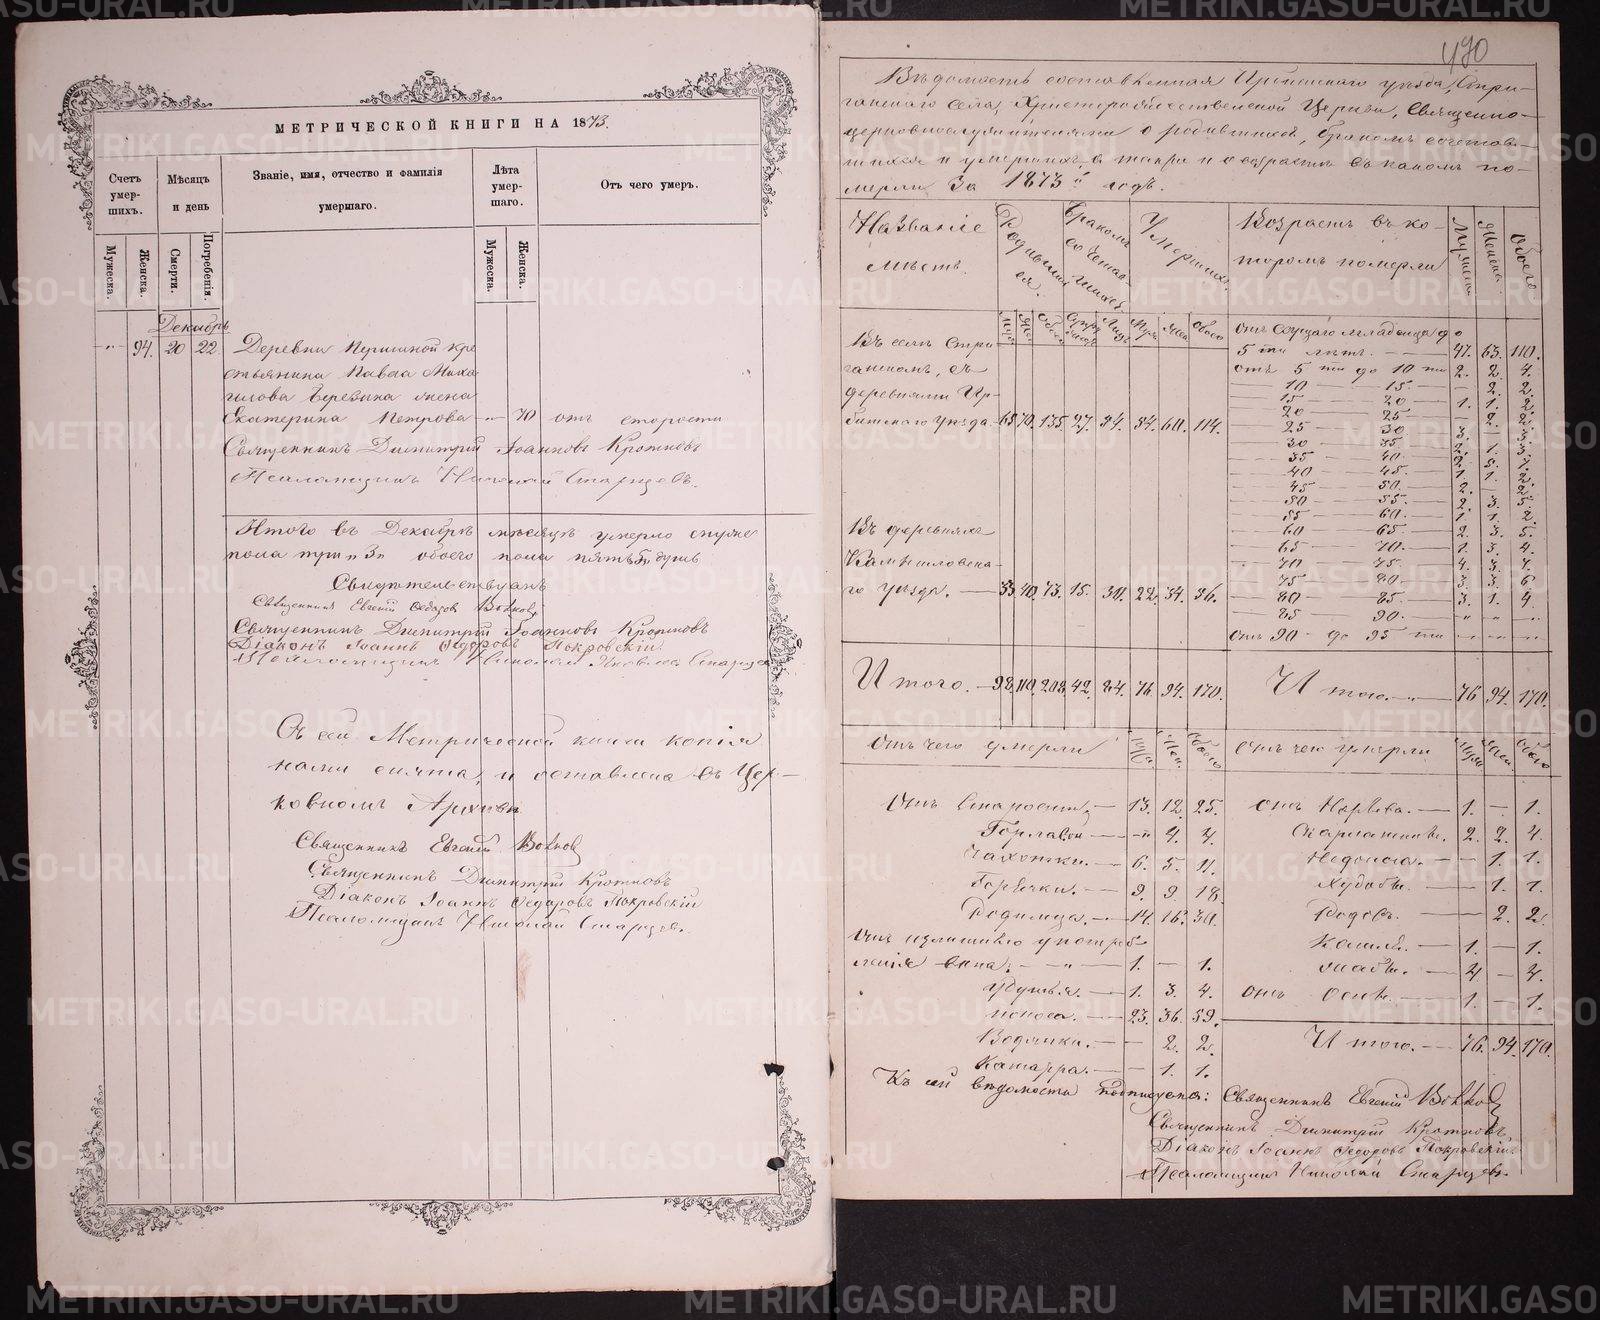 МЕТРИЧЕСКОЙ КНИГИ НА 1873.
Счетъ умер-шихъ.
Мѣсяцъ и день
Званіе, имя, отчество и фамилія умершаго.
Лѣта умер-шаго.
Отъ чего умеръ.
Мужеска.
Женска.
Смерти.
Погребенія.
Мужеска.
Женска.
Декабрь
-"- 94. 20 22 Деревни Кре
стьянина Павла Миха
йлова Березина жена
Екатерина Петрова -"- 70 отъ старости
Священникъ Димитрій Іоанновъ Кротковъ
Псаломщикъ Николай Старцевъ.
Итого въ Декабрѣ мѣсяцѣ умерло муже
пола обоего пола пять 5 душъ
Свидѣтельствуемъ
Священникъ Евгеній Волковъ
Священникъ Димитрій Іоанновъ Кротковъ
Діаконъ Іоаннъ Ѳедоровъ Покровскій
Псаломщикъ Николай Яковлевъ Старцевъ
Съ сей Метрической книги копія
нами снята, и оставлена въ Цер-
ковномъ Архивѣ
Священникъ Евгеній Волковъ
Священникъ Димитрій Кротковъ
Діаконъ Іоаннъ Ѳедоровъ Покровскій
Псаломщикъ Николай Старцевъ.
490
Вѣдомость составленная Ирбитскаго уѣзда, Стри-
ганскаго села, Христорождественской Церкви, Священно-
церковнослужителями о родившихся, бракомъ сочетав-
шихся и умершихъ, а также и о возрастѣ въ какомъ по-
мерли За 1873й годъ.
Названіе мѣстъ.
Родившихся.
Бракомъ сочетавшихся
Умершихъ.
Возрастъ въ ко-
торомъ померли
Мужеска
Женска.
Обоего
Въ селѣ Стри-
ганскомъ, съ
деревнями Ир-
битскаго уѣзда. 65 70. 135. 27. 54. 54. 60. 114.
Въ деревняхъ
Камышловска-
го уѣзда. — 33 40. 73. 15. 30. 22. 34. 56.
Итого. — 98. 110. 208. 42. 84. 76. 94. 170.
отъ младенца до
5 ти лѣтъ. — 47. 63. 110.
отъ 5 ти до 10 ти 2. 2. 4.
— 10 — 15. — — 2. 2.
— 15 — 20 — 1. 1. 2.
— 20 — 25 — — 2. 2.
— 25 — 30 — 3. — 3.
— 30 — 35 — 2. 1. 3.
— 35 — 40. — 2. 5. 7.
— 40 — 45. — 1. 1. 2.
— 45 — 50. — 2. — 2.
— 50 — 55. — 2. 3. 5.
— 55 — 60. — 1. 1. 2.
— 60 — 65. — 2. 3. 5.
— 65 — 70. — 1. 3. 4.
— 70 — 75. — 4. 3. 7.
— 75 — 80. — 3. 3. 6
— 80 — 85. — 3. 1. 4.
— 85 — 90. — " " "
отъ 90 — до 95 ти " " "
Итого. — 76 94. 170.
отъ чего умерли
отъ чего умерли.
Отъ Старости. — 13. 12. 25.
— " 4. 4.
Чахотки. — 6. 5. 11.
Горячки. — 9. 9. 18.
Родимца. — 14. 16. 30.
Отъ излишняго употреб
ленія вина. — " — 1. — 1.
Удушья. — 1. 3. 4.
поноса. — 23. 36. 59.
Водянки. — — 2. 2.
Катарра. — — 1. 1.
отъ — 1. — 1.
Скарлатины. 2. 2. 4.
— 1. 1.
Худобы. — — 1. 1.
Родовъ. — 2. 2.
Кашля. — 1. — 1.
Жабы. — 4 — 4.
отъ Оспы. — 1. — 1.
Итого. — 76. 94. 170.
Къ сей вѣдомости подписуемся: Священникъ Евгеній Волковъ
Священникъ Димитрій Кротковъ
Діаконъ Іоаннъ Ѳедоровъ Покровскій
Псаломщикъ Николай Старцевъ.
METRIKI.GASO-URAL.RU